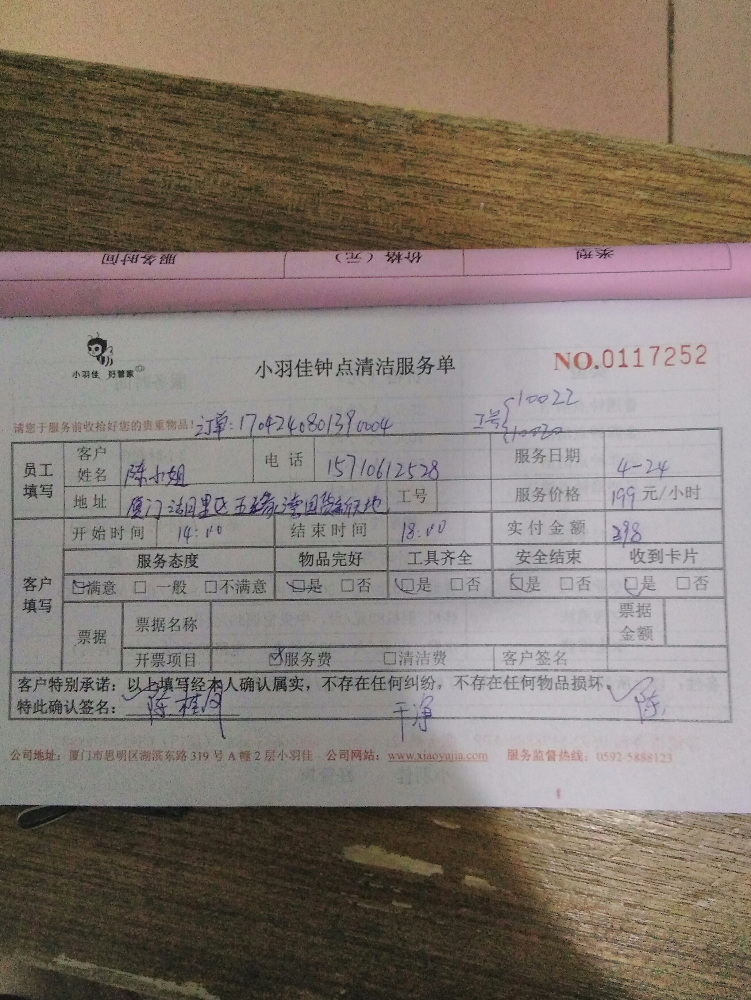 服务时间 价格（元） 类型
小羽佳 好管家
小羽佳钟点清洁服务单
NO.0117252
请您于服务前收拾好您的贵重物品！ 订单：1704240801390004 工号 10022
10020
员工填写 客户姓名 陈小姐 电话 15710612528 服务日期 4-24
地址 厦门 工号 服务价格 199 元/小时
客户填写 开始时间 14:00 结束时间 18:00 实付金额 398
服务态度 物品完好 工具齐全 安全结束 收到卡片
☑满意 □ 一般 □不满意 ☑是 □否 ☑是 □否 ☑是 □否 ☑是 □否
票据 票据名称 票据金额
开票项目 ☑服务费 □清洁费 客户签名
客户特别承诺：以上填写经本人确认属实，不存在任何纠纷，不存在任何物品损坏。
特此确认签名： 陈桂 干净 陈
公司地址：厦门市思明区湖滨东路 319 号 A 幢 2 层小羽佳 公司网站：www.xiaoyujia.com 服务监督热线：0592-5888123